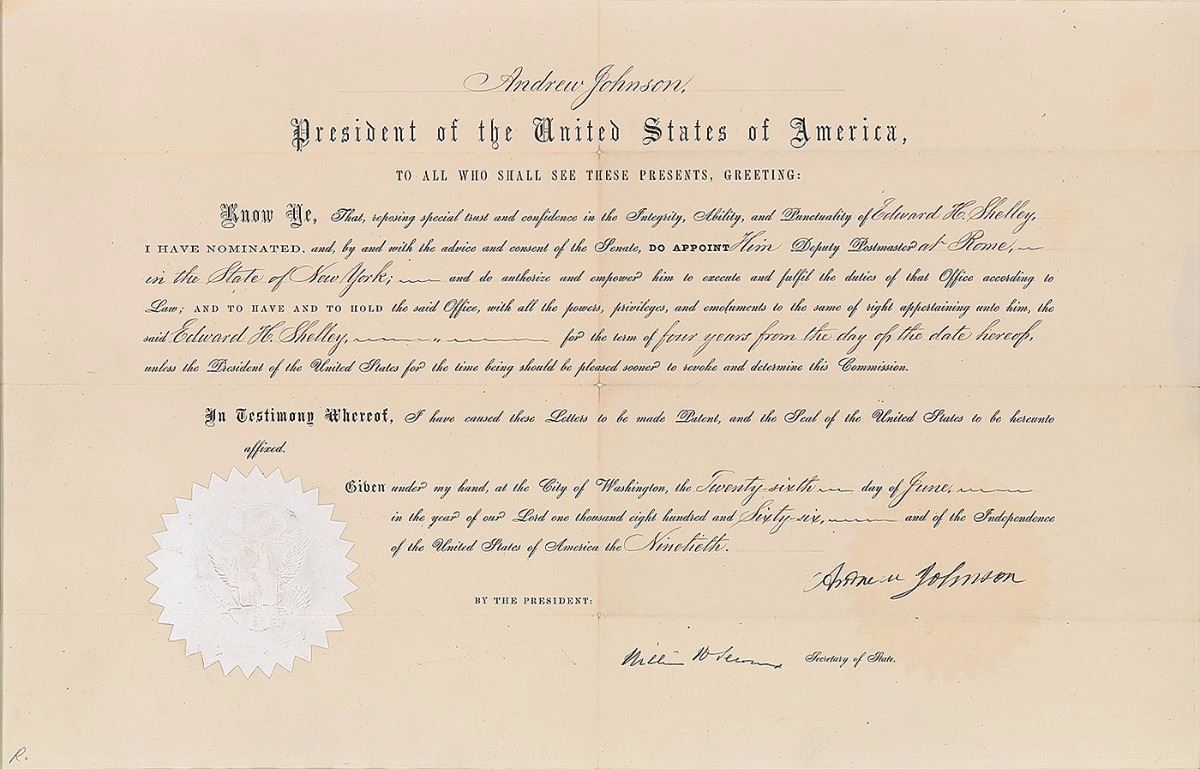 Andrew Johnson,
President of the United States of America,
TO ALL WHO SHALL SEE THESE PRESENTS, GREETING:
Know Ye, That, reposing special trust and confidence in the Integrity, Ability, and Punctuality of Edward H. Shelley,
I HAVE NOMINATED, and, by and with the advice and consent of the Senate, DO APPOINT Him Deputy Postmaster at Rome,
in the State of New York; and do authorize and empower him to execute and fulfil the duties of that Office according to
Law; AND TO HAVE AND TO HOLD the said Office, with all the powers, privileges, and emoluments to the same of right appertaining unto him, the
said Edward H. Shelley, for the term of four years from the day of the date hereof,
unless the President of the United States for the time being should be pleased sooner to revoke and determine this Commission.
In Testimony Whereof, I have caused these Letters to be made Patent, and the Seal of the United States to be hereunto
affixed.
Given under my hand, at the City of Washington, the Twenty-sixth day of June,
in the year of our Lord one thousand eight hundred and Sixty-six, and of the Independence
of the United States of America the Ninetieth.
Andrew Johnson
BY THE PRESIDENT:
William H Seward Secretary of State.
R.